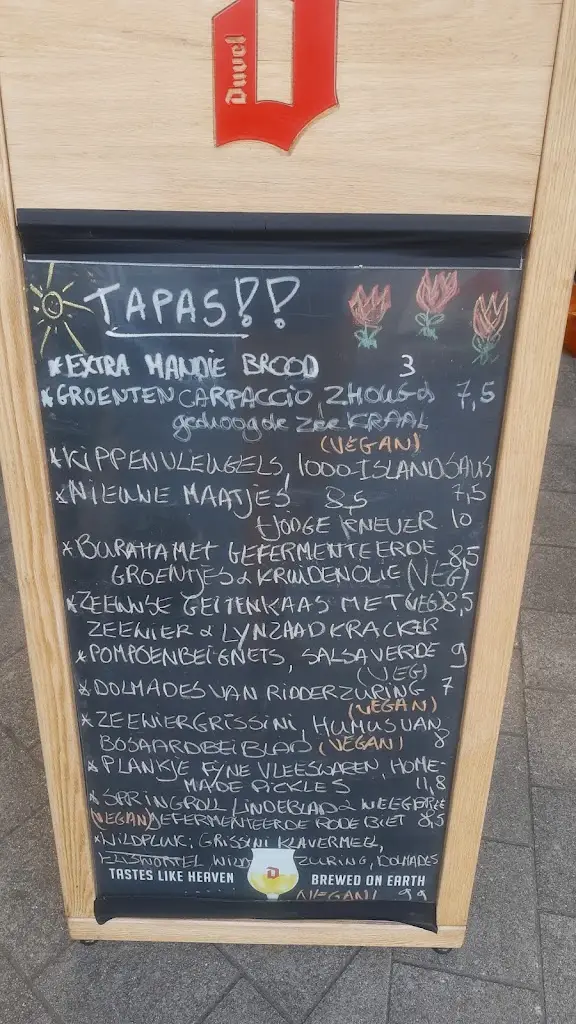 Duvel
TAPAS!!
*EXTRA MANDJE BROOD 3
*GROENTEN CARPACCIO, ZHOUG & 7,5
gedroogde ZEEKRAAL
(VEGAN)
*KIPPENVLEUGELS, 1000 ISLANDSAUS
7,5
*NIEUWE MAATJES 8,5
10
*BURATTA MET GEFERMENTEERDE 8,5
GROENTJES & KRUIDENOLIE (VEG)
*ZEEUWSE GEITENKAAS MET (VEG) 8,5
ZEEWIER & LYNZAADKRACKER
*POMPOENBEIGNETS, SALSA VERDE 9
(VEG)
*DOLMADES VAN RIDDERZURING 7
(VEGAN)
*ZEEWIERGRISSINI, HUMUS VAN
BOSAARDBEIBLAD (VEGAN) 8
*PLANKJE FYNE VLEESWAREN, HOME-
MADE PICKLES 11,8
*SPRINGROLL LINDEBLAD &
(VEGAN) GEFERMENTEERDE RODE BIET 8,5
*WILDPLUK: GRISSINI KLAVERMEEL,
ZURING, DOLMADES
TASTES LIKE HEAVEN BREWED ON EARTH
(VEGAN)